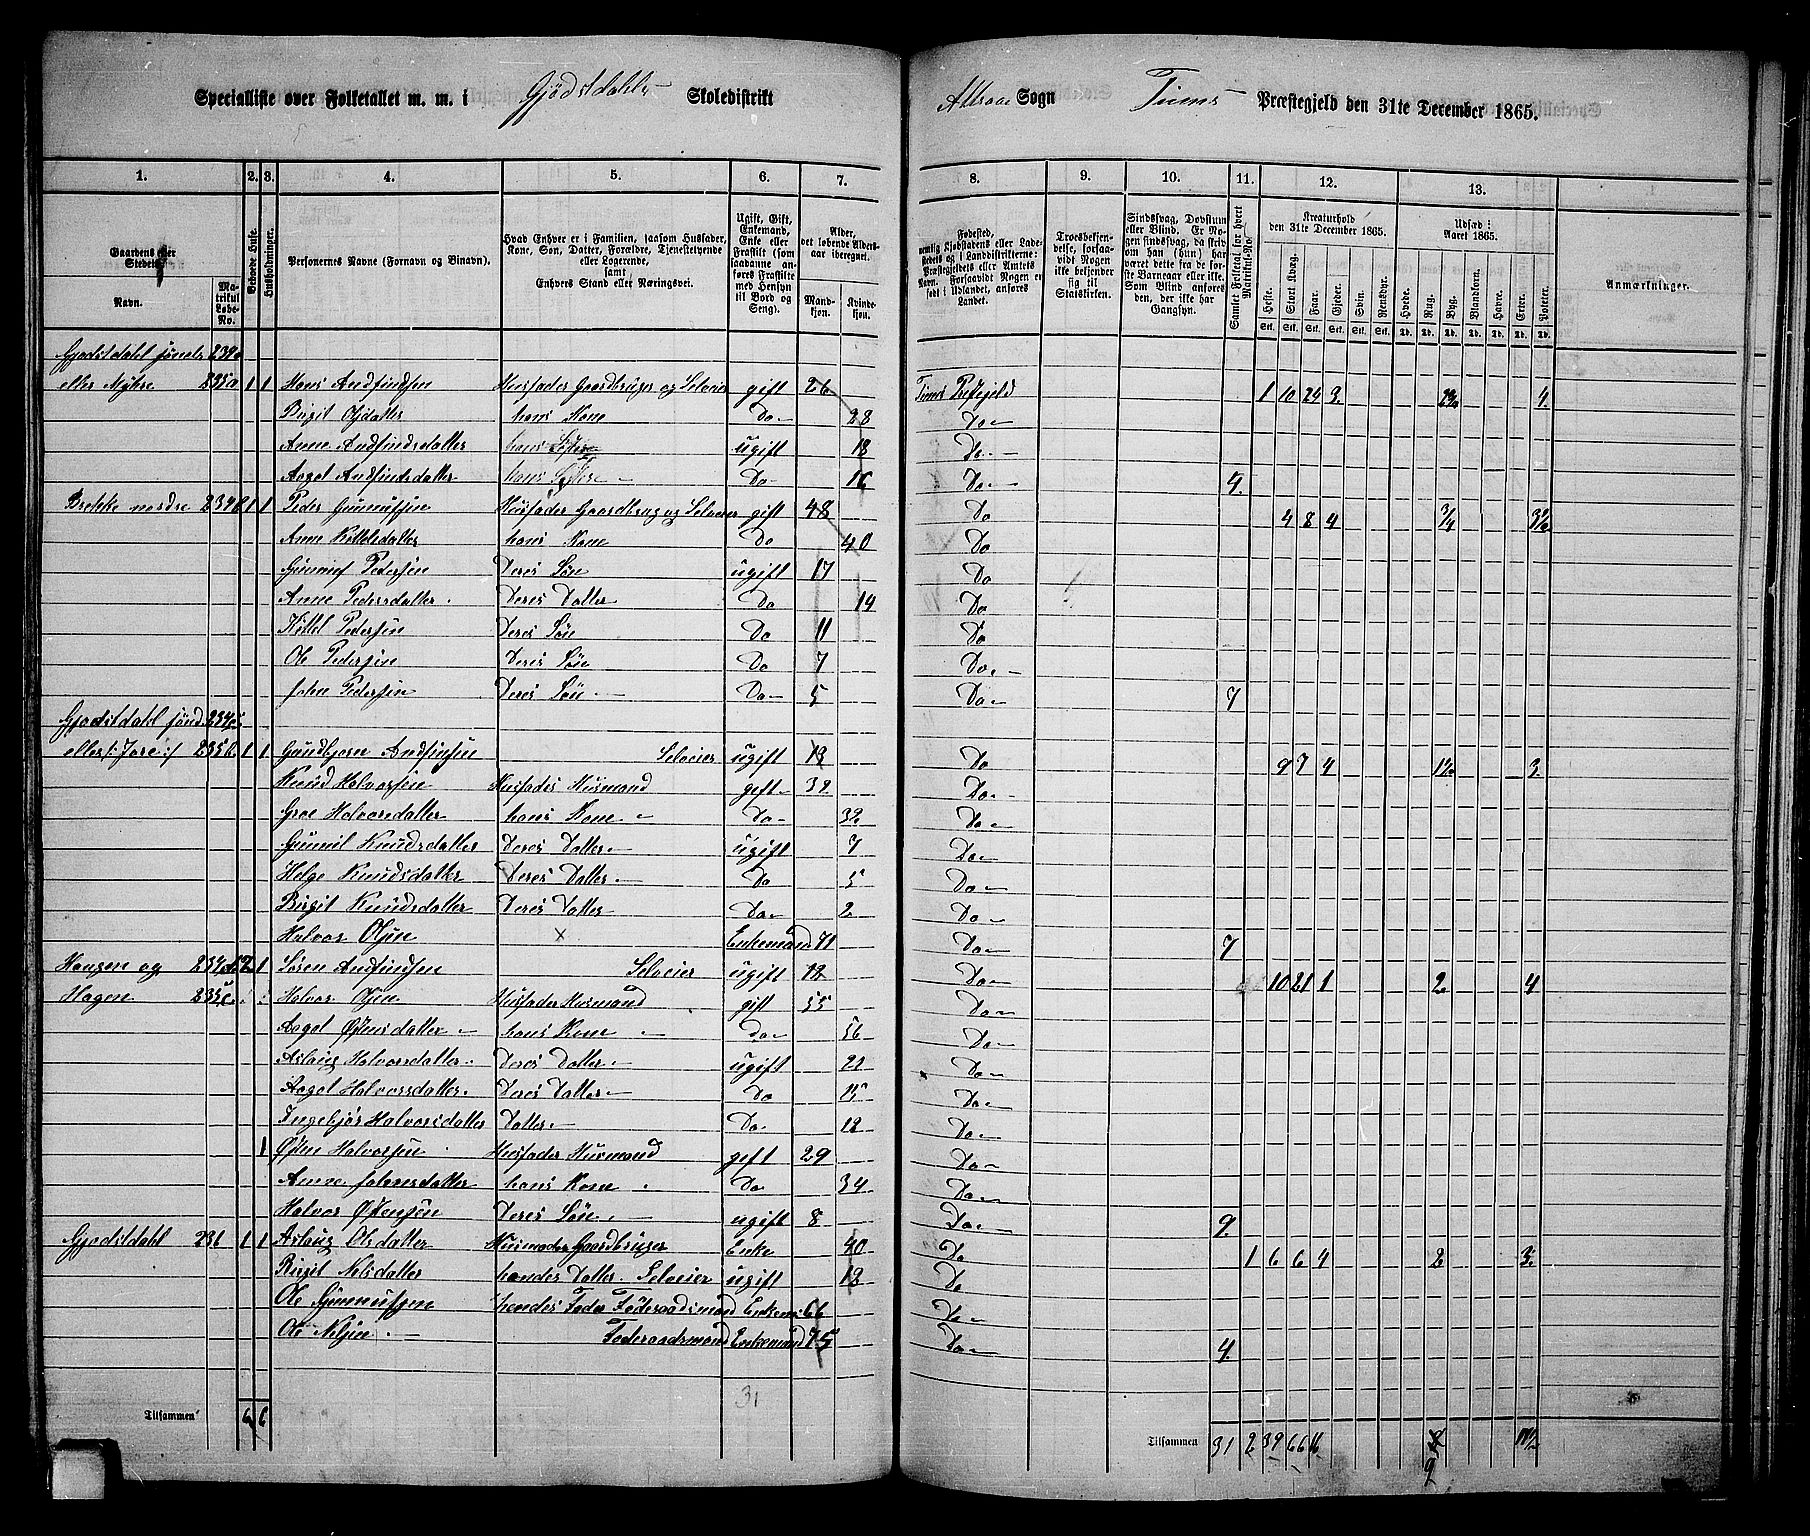 Specialliste over Folketallet m. m. i Gjødstdahls Skoledistrikt Attraae Sogn Tinns Præstegjeld den 31te December 1865.
1. 2. 3. 4. 5. 6. 7. 8. 9. 10. 11. 12. 13.
Gaardens eller Stedets Navn. Matrikul Løbe-No. Beboede Huse. Husholdninger. Personernes Navne (Fornavn og Binavn).
Hvad Enhver er i Familien, saasom Husfader, Kone, Søn, Datter, Forældre, Tjenestetyende eller Logerende, samt Enhvers Stand eller Næringsvei.
Ugift, Gift, Enkemand, Enke eller Fraskilt
Alder, det løbende Aldersaar iberegnet. Mandkjøn. Kvindekjøn.
Kreaturhold den 31te December 1865. Heste. Stort Kvæg. Faar. Gjeder. Svin. Rensdyr.
Udsæd i Aaret 1865. Hvede. Rug. Byg. Blandkorn. Havre. Erter. Poteter.
Anmærkninger.
Gjødstdahl
eller Myhre 235a 1 1 Hans Andfindsen Husfader Gaardbruger og Selveier gift 26 Tinns Præstegjeld 1 10 24 3 4
Birgit Olsdatter hans Kone Do 28 Do
Anne Andfindsdatter hans Søster ugift 18 Do
Aagot Andfindsdatter hans Søster Do 16 Do 4
Brekke nordre 1 1 Peder Gunnufsen Husfader Gaardbrug og Selveier gift 48 Do 4 8 4 3/4 3½
Anne Kittilsdatter hans Kone Do 40 Do
Gunnuf Pedersen Deres Søn ugift 17 Do
Anne Pedersdatter Deres Datter Do 14 Do
Kittil Pedersen Deres Søn Do 11 Do
Ole Pedersen Deres Søn Do 7 Do
John Pedersen Deres Søn Do 5 Do 7
Gjødstdahl
235b 1 1 Gundbjørn Andfindsen Selveier ugift Do 9 7 4 3
Knud Halvorsen Husfader Husmand gift 32 Do
Groe Halvorsdatter hans Kone Do 32 Do
Gunnil Knudsdatter Deres Datter ugift 7 Do
Helge Knudsdatter Deres Datter Do 5 Do
Birgit Knudsdatter Deres Datter Do 2 Do
Halvor Olsen × Enkemand 71 Do 7
Haugen og 2 1 Søren Andfindsen Selveier ugift 12 Do 10 21 1 2 4
Hagen 235c Halvor Olsen Husfader Husmand gift 55 Do
Aagot Østensdatter hans Kone Do 56 Do
Aslaug Halvorsdatter Deres Datter ugift 22 Do
Aagot Halvorsdatter Deres Datter Do 15 Do
Ingebjør Halvorsdatter Datter Do 12 Do
1 Østen Halvorsen Husfader Husmand gift 29 Do
Anne Johnsdatter hans Kone Do 34 Do
Halvor Østensen Deres Søn ugift 8 Do 9
Gjødstdahl 236 1 1 Aslaug Olsdatter Husmoder Gaardbruger Enke 40 Do 1 6 6 4 2 3
Birgit Nilsdatter hendes Datter Selveier ugift 12 Do
Ole Gunnufsen hendes Fader Føderaadsmand Enkem 66 Do
Ole Nilsen Føderaadsmand Enkemand 75 Do 4
31
Tilsammen 6 6
Tilsammen 31 2 39 66 16 9